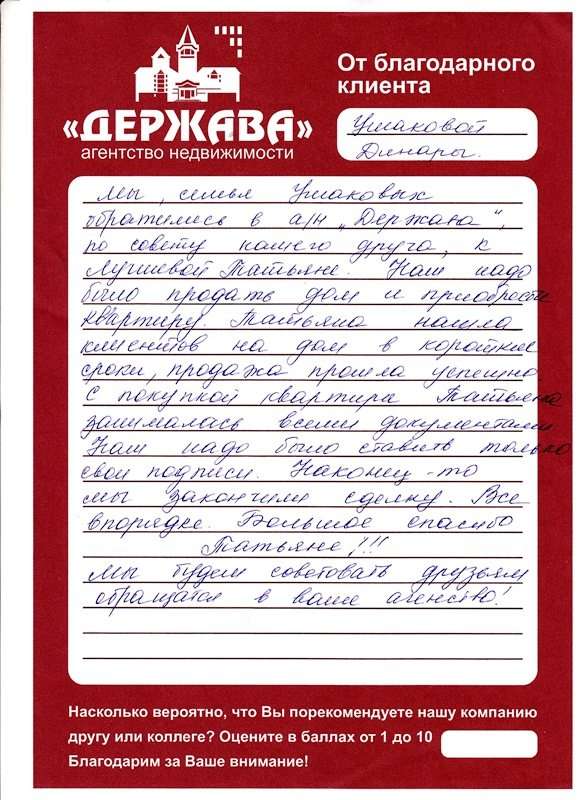 «ДЕРЖАВА»
агентство недвижимости
От благодарного
клиента
Ушаковой
Динары.
Мы, семья Ушаковых
обратились в а/н „Держава“,
по совету нашего друга, к
Лучшевой Татьяне. Нам надо
было продать дом и приобрести
квартиру. Татьяна нашла
клиентов на дом в короткие
сроки, продажа прошла успешно.
С покупкой квартира Татьяна
занималась всеми документами.
Нам надо было ставить только
свои подписи. Наконец-то
мы закончили сделку. Все
впорядке. Большое спасибо
Татьяне!!!
Мы будем советовать друзьям
обращатся в ваше агенство!
Насколько вероятно, что Вы порекомендуете нашу компанию
другу или коллеге? Оцените в баллах от 1 до 10
Благодарим за Ваше внимание!